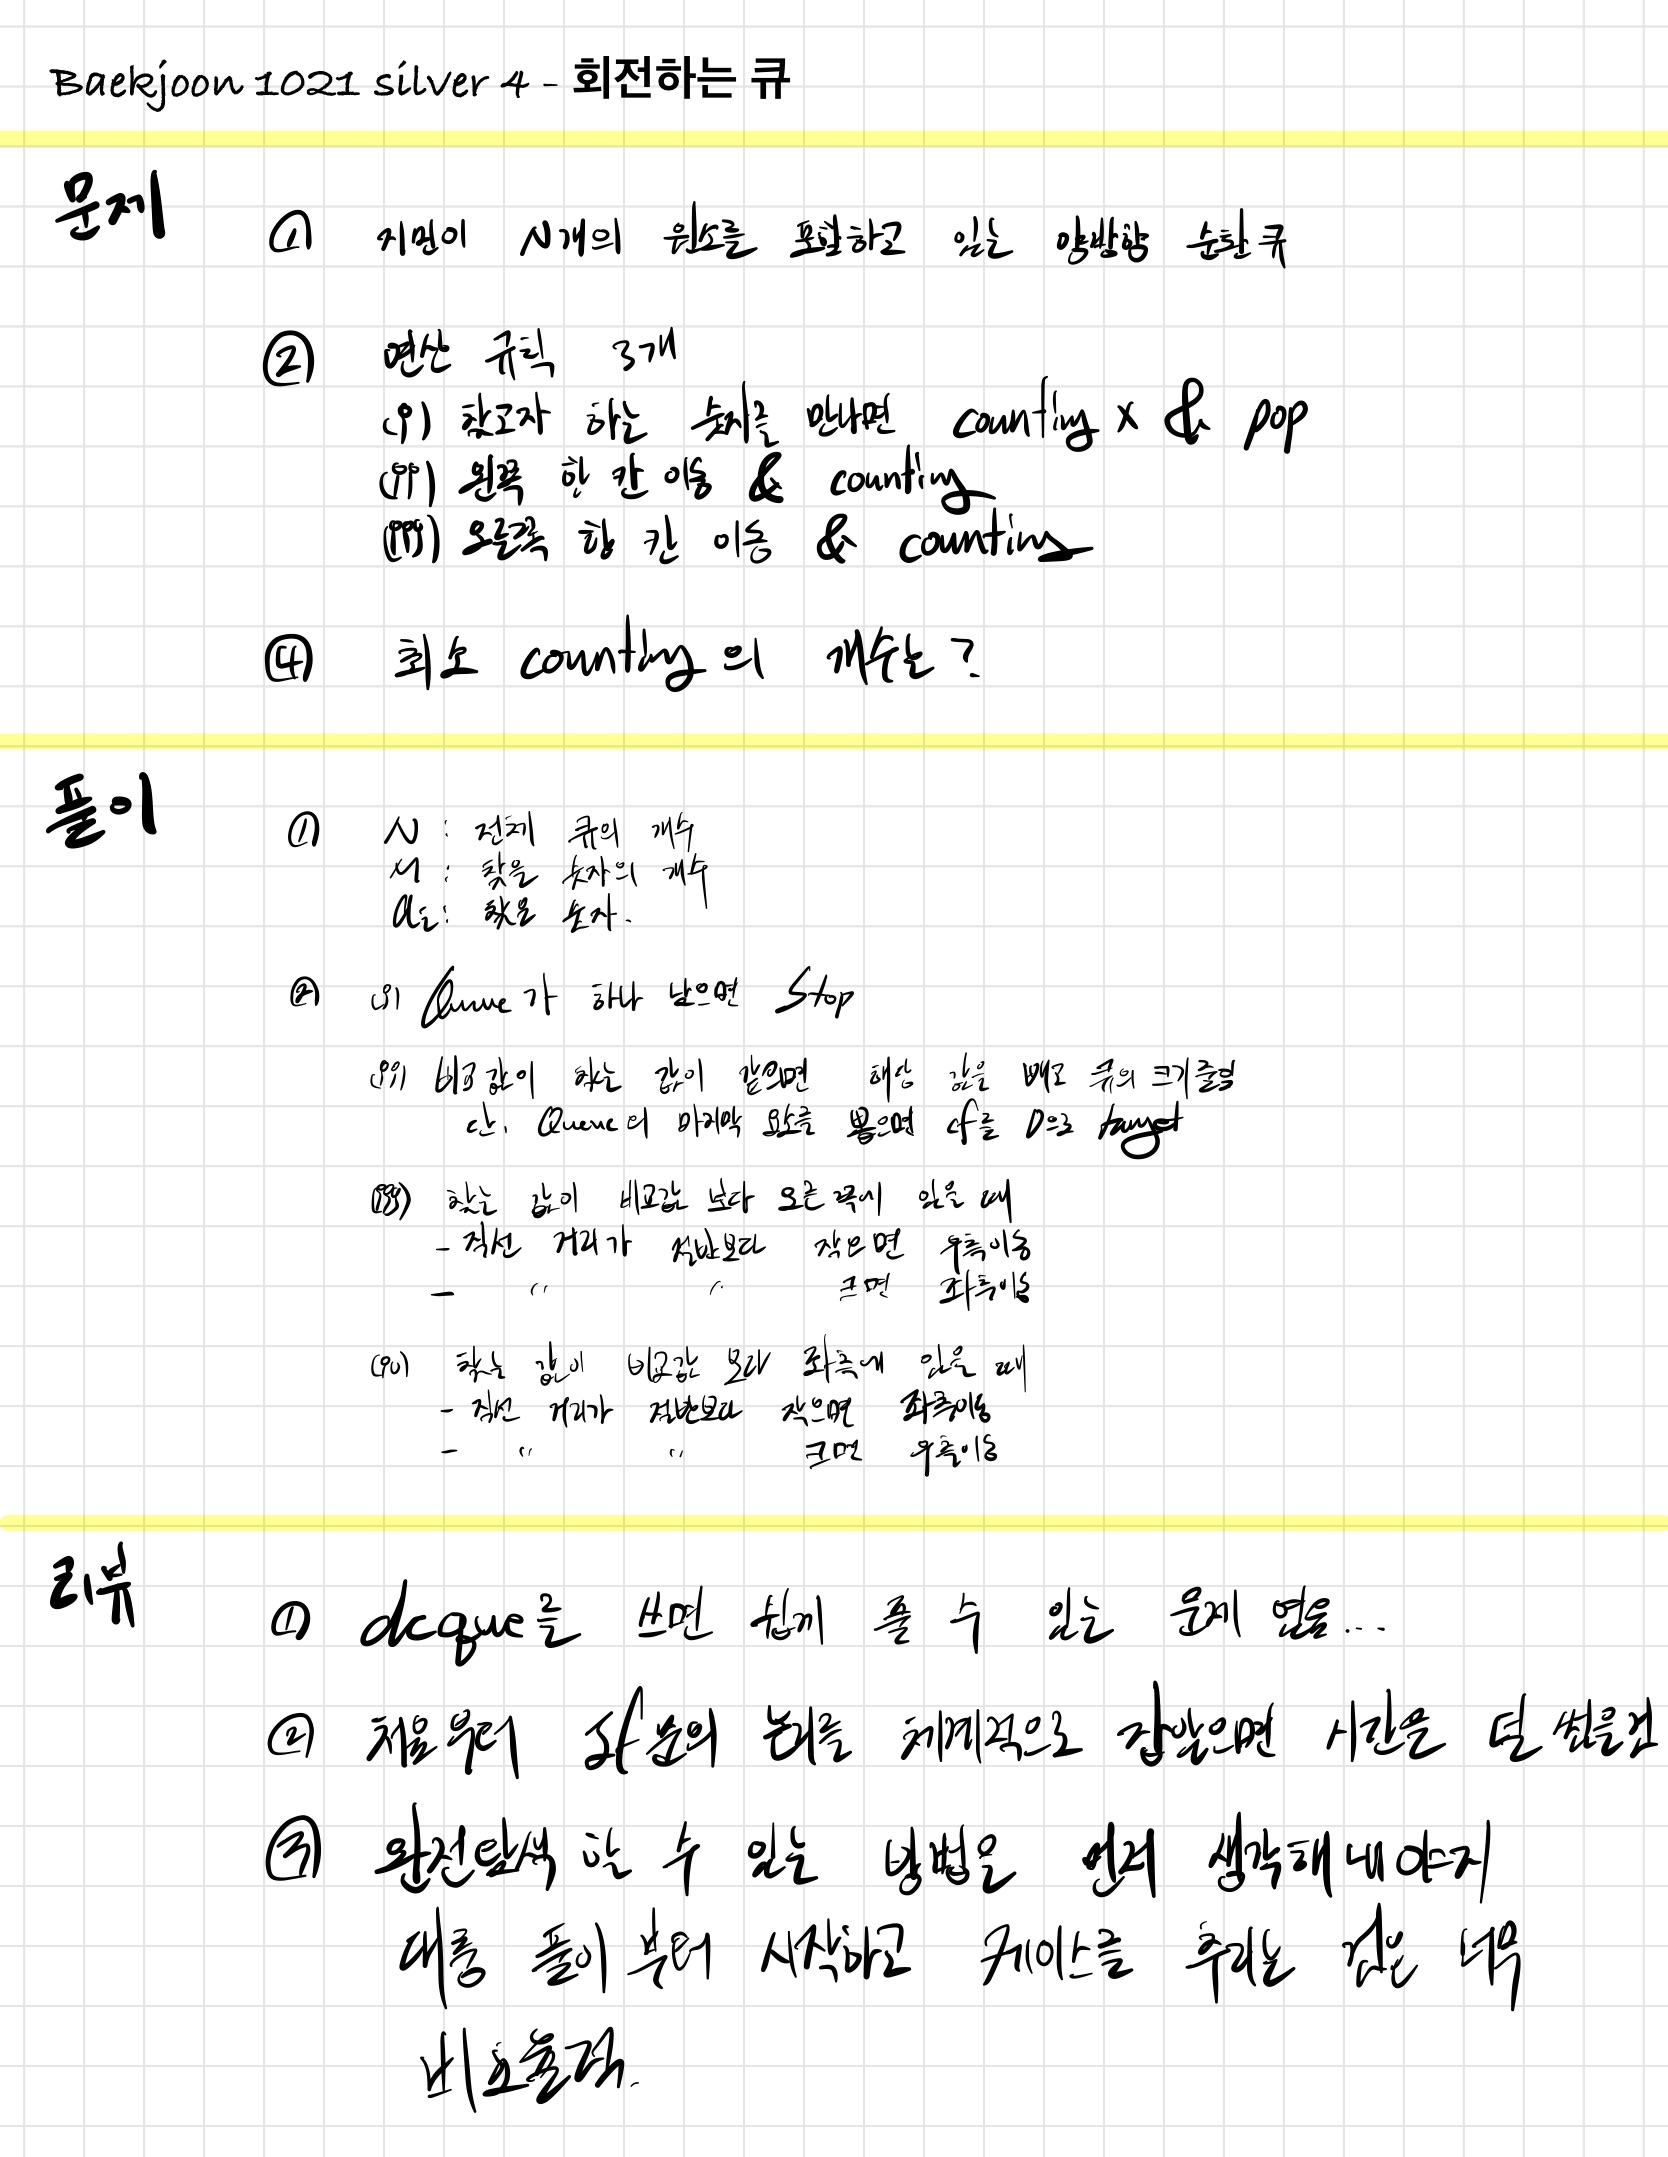 Baekjoon 1021 silver 4 - 회전하는 큐
문제
① 지민이 N개의 원소를 포함하고 있는 양방향 순환 큐
② 연산 규칙 3개
(i) 찾고자 하는 숫자를 만나면 counting x & pop
(ii) 왼쪽 한 칸 이동 & counting
(iii) 오른쪽 한 칸 이동 & counting
④ 최소 counting의 개수는?
풀이
① N : 전체 큐의 개수
M : 찾을 숫자의 개수
: 찾을 숫자.
② (i) Queue가 하나 남으면 Stop
(ii) 비교값이 찾는 값이 같으면 해당 값을 빼고 큐의 크기 줄임
단, Queue의 마지막 요소를 뽑으면 를 0으로 target
(iii) 찾는 값이 비교값 보다 오른쪽에 있을 때
- 직선 거리가 절반보다 작으면 우측이동
- " " 크면 좌측이동
(iv) 찾는 값이 비교값 보다 좌측에 있을 때
- 직선 거리가 절반보다 작으면 좌측이동
- " " 크면 우측이동
리뷰
① deque를 쓰면 쉽게 풀 수 있는 문제 였음...
② 처음부터 if문의 논리를 체계적으로 잡았으면 시간을 덜 썼을건
③ 완전탐색 할 수 있는 방법을 먼저 생각해내야지
대충 풀이부터 시작하고 케이스를 추리는 것은 너무
비효율적.